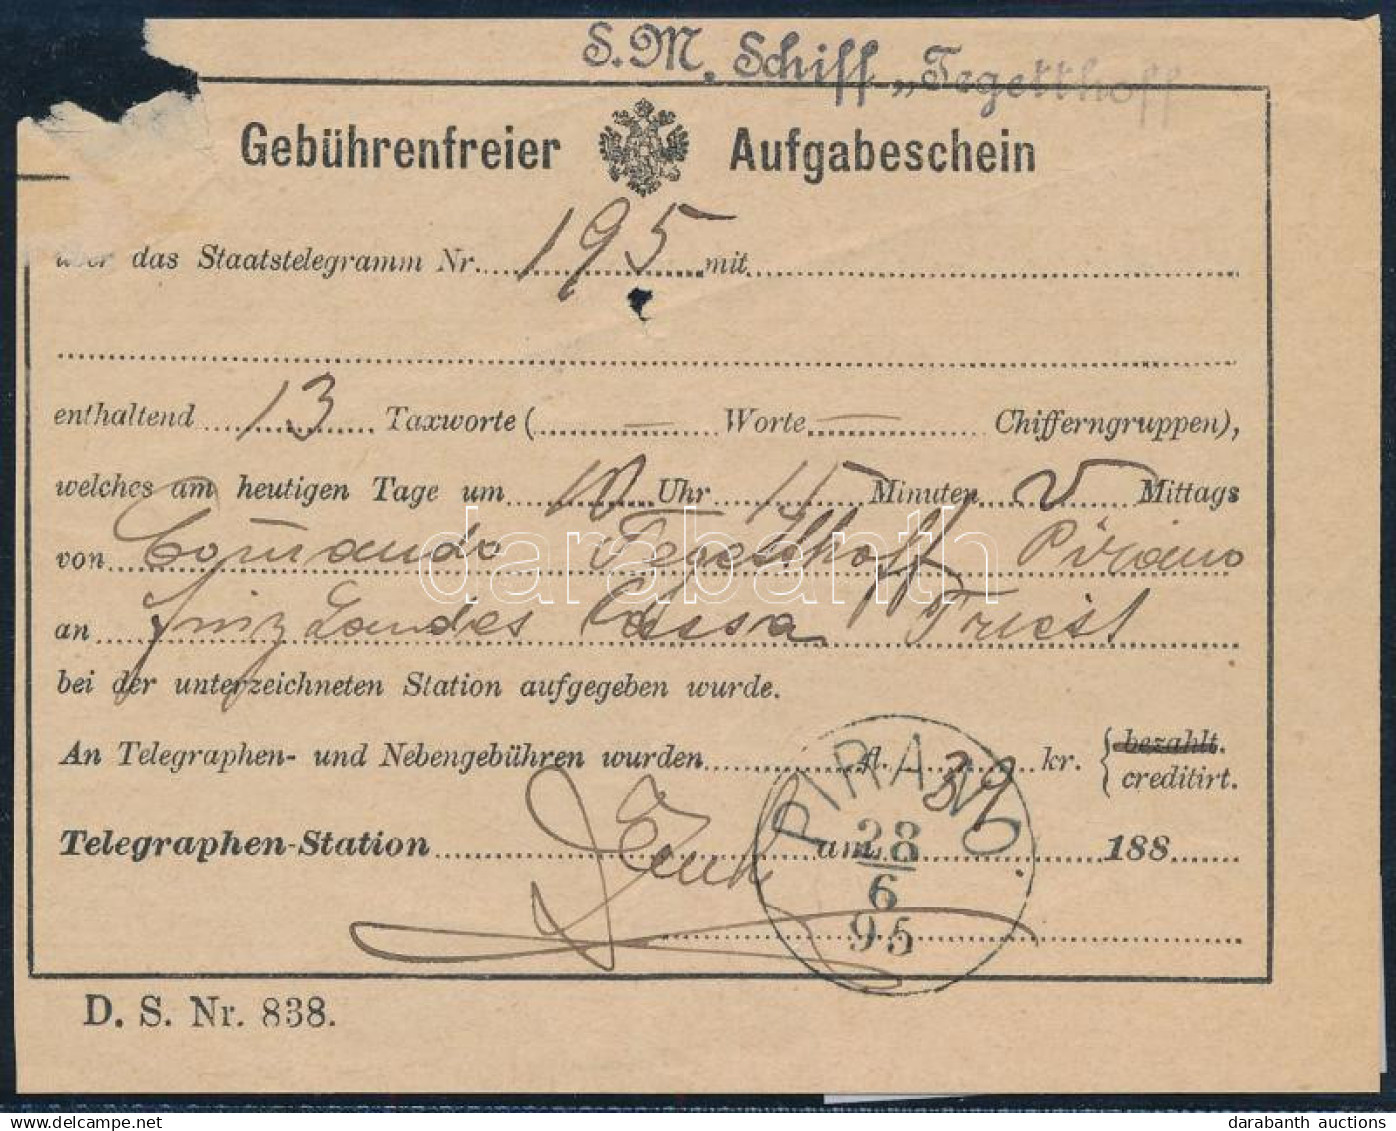 S. M. Schiff „Tegetthoff
Gebührenfreier Aufgabeschein
über das Staatstelegramm Nr. 195 mit
enthaltend 13 Taxworte ( — Worte — Chifferngruppen),
welches am heutigen Tage um 10 Uhr Minuten V Mittags
von Comando Tegetthoff Pirano
an Finz Landes Cassa Triest
bei der unterzeichneten Station aufgegeben wurde.
An Telegraphen- und Nebengebühren wurden fl. 39 kr. { bezahlt.
creditirt.
Telegraphen-Station am 188
PIRANO
28
6
95
D. S. Nr. 838.
darabanth
darabanth auctions